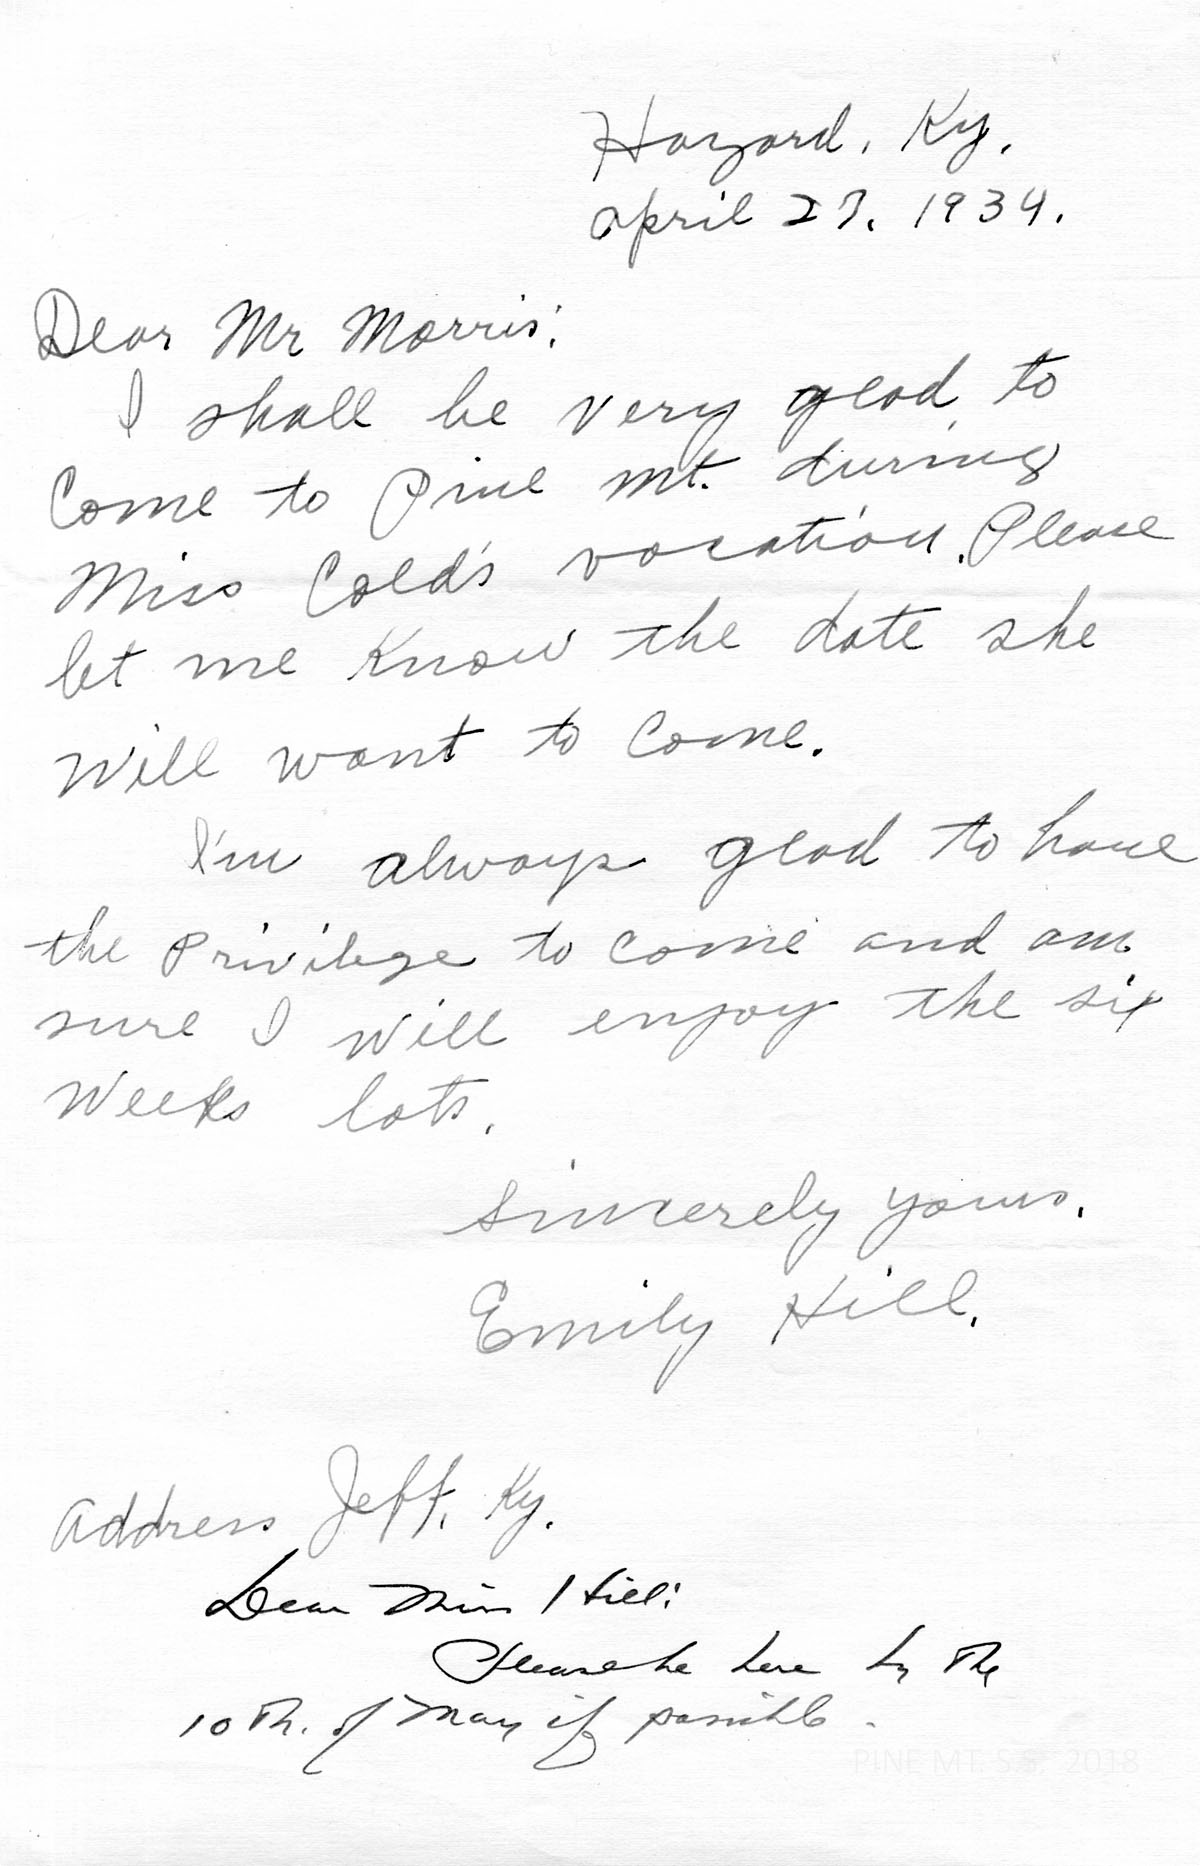 Hazard, Ky.
April 27, 1934.
Dear Mr Morris:
I shall be very glad to
Come to Pine Mt. during
Miss Cold's vacation. Please
let me Know the date she
Will want to Come.
I'm always glad to have
the Privilege to come and am
sure I will enjoy the six
Weeks lots.
Sincerely yours,
Emily Hill.
Address Jeff, Ky.
Dear Miss Hill:
Please be here by the
10th. of May if possible.
PINE MT. S.S. 2018